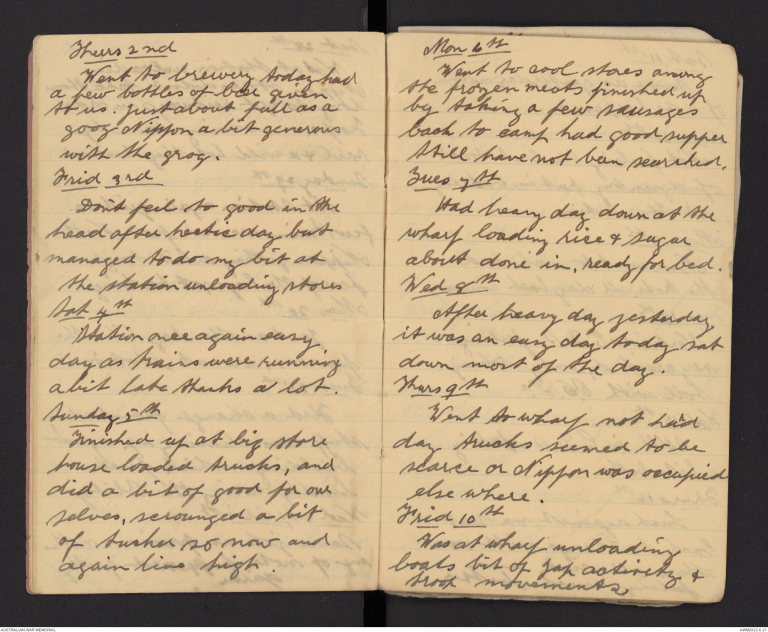 Thurs 2nd
Went to brewery today had
a few bottles of beer given
to us. just about full as a
goog Nippon a bit generous
with the grog.
Frid 3rd
Don't feel to good in the
head after hectic day but
managed to do my bit at
the station unloading stores
Sat 4th
Station once again easy
day as trains were running
a bit late thanks a lot.
Sunday 5th
Finished up at big store
house loaded trucks, and
did a bit of good for our
selves, scrounged a bit
of tucker so now and
again live high.
Mon 6th
Went to cool stores among
the frozen meats finished up
by taking a few sausages
back to camp had good supper
still have not been searched.
Tues 7th
Had heavy day down at the
wharf loading rice & sugar
about done in, ready for bed.
Wed 8th
After heavy day yesterday
it was an easy day today sat
down most of the day.
Thurs 9th
Went to wharf not hard
day trucks seemed to be
scarce or Nippon was occupied
else where.
Frid 10th
Was at wharf unloading
boats bit of Jap activity &
troop movements.
AUSTRALIAN WAR MEMORIAL